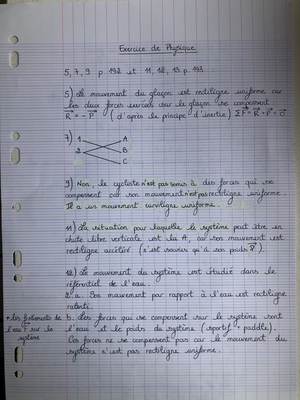 Exercice de Physique
5, 7, 9 p 192 et 11, 12, 13 p 193
5) Le mouvement du glaçon est rectiligne uniforme car
les deux forces exercées sur le glaçon se compensent
R = - P (d'après le principe d'inertie) ΣF = R + P = 0
7) 1 A
2 B
C
9) Non, le cycliste n'est pas soumis à des forces qui se
compensent car son mouvement n'est pas rectiligne uniforme.
Il a un mouvement curviligne uniforme.
11) La situation pour laquelle le système peut être en
chute libre verticale est la A, car son mouvement est
rectiligne accéléré (n'est soumis qu'à son poids P).
12) Le mouvement du système est étudié dans le
référentiel de l'eau.
2. a. Son mouvement par rapport à l'eau est rectiligne
ralenti.
b. Les forces qui se compensent sur le système sont
+ les frottements de l'eau sur le système
l'eau et le poids du système (sportif + paddle).
Ces forces ne se compensent pas car le mouvement du
système n'est pas rectiligne uniforme.